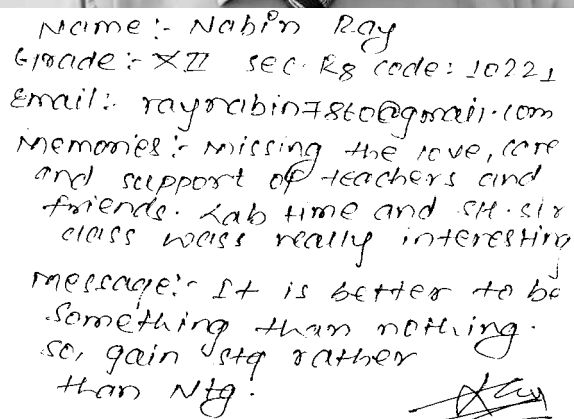 Name:- Nabin Ray
Grade:- XII sec. R8 code: 10221
Email:- raynabin7860@gmail.com
Memories:- Missing the love, care
and support of teachers and
friends. Lab time and SH. sir
class wass really interesting
message:- It is better to be
something than nothing.
so, gain stg rather
than Ntg.